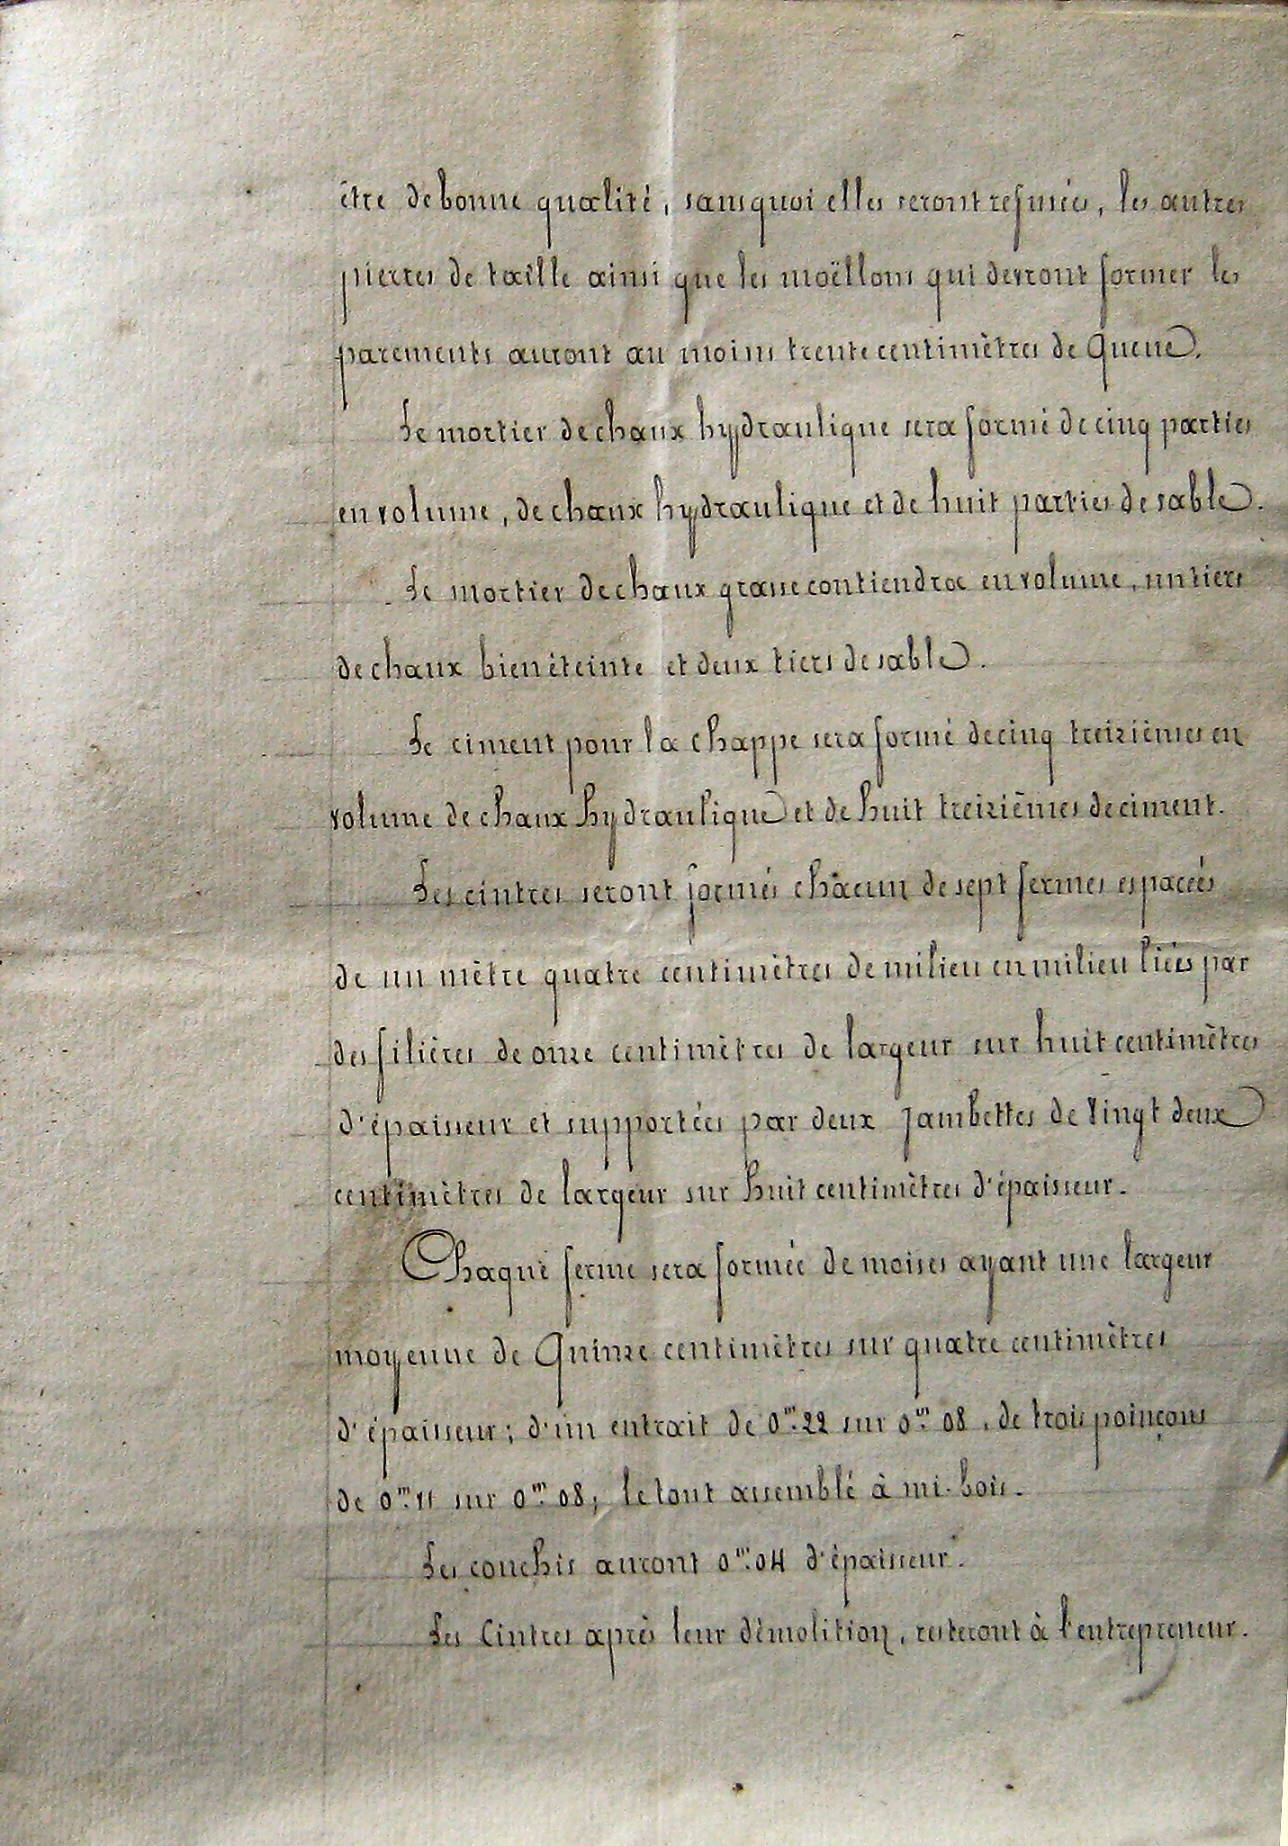 être de bonne qualité, sans quoi elles seront refusées, les autres
pierres de taille ainsi que les moëllons qui devront former les
parements auront au moins trente centimètres de Queue.
Le mortier de chaux hydraulique sera formé de cinq parties
en volume, de chaux hydraulique et de huit parties de sable.
Le mortier de chaux grasse contiendra en volume, un tiers
de chaux bien éteinte et deux tiers de sable.
Le ciment pour la chappe sera formé de cinq treizièmes en
volume de chaux hydraulique et de huit treizièmes de ciment.
Les cintres seront formés chacun de sept fermes espacées
de un mètre quatre centimètres de milieu en milieu liées par
des filières de onze centimètres de largeur sur huit centimètres
d'épaisseur et supportées par deux Jambettes de Vingt deux
centimètres de largeur sur huit centimètres d'épaisseur.
Chaque ferme sera formée de moises ayant une largeur
moyenne de Quinze centimètres sur quatre centimètres
d'épaisseur; d'un entrait de 0m.22 sur 0m.08, de trois poinçons
de 0m.11 sur 0m.08; le tout assemblé à mi-bois.
Les couchis auront 0m.04 d'épaisseur.
Les Cintres après leur démolition, resteront à l'entrepreneur.